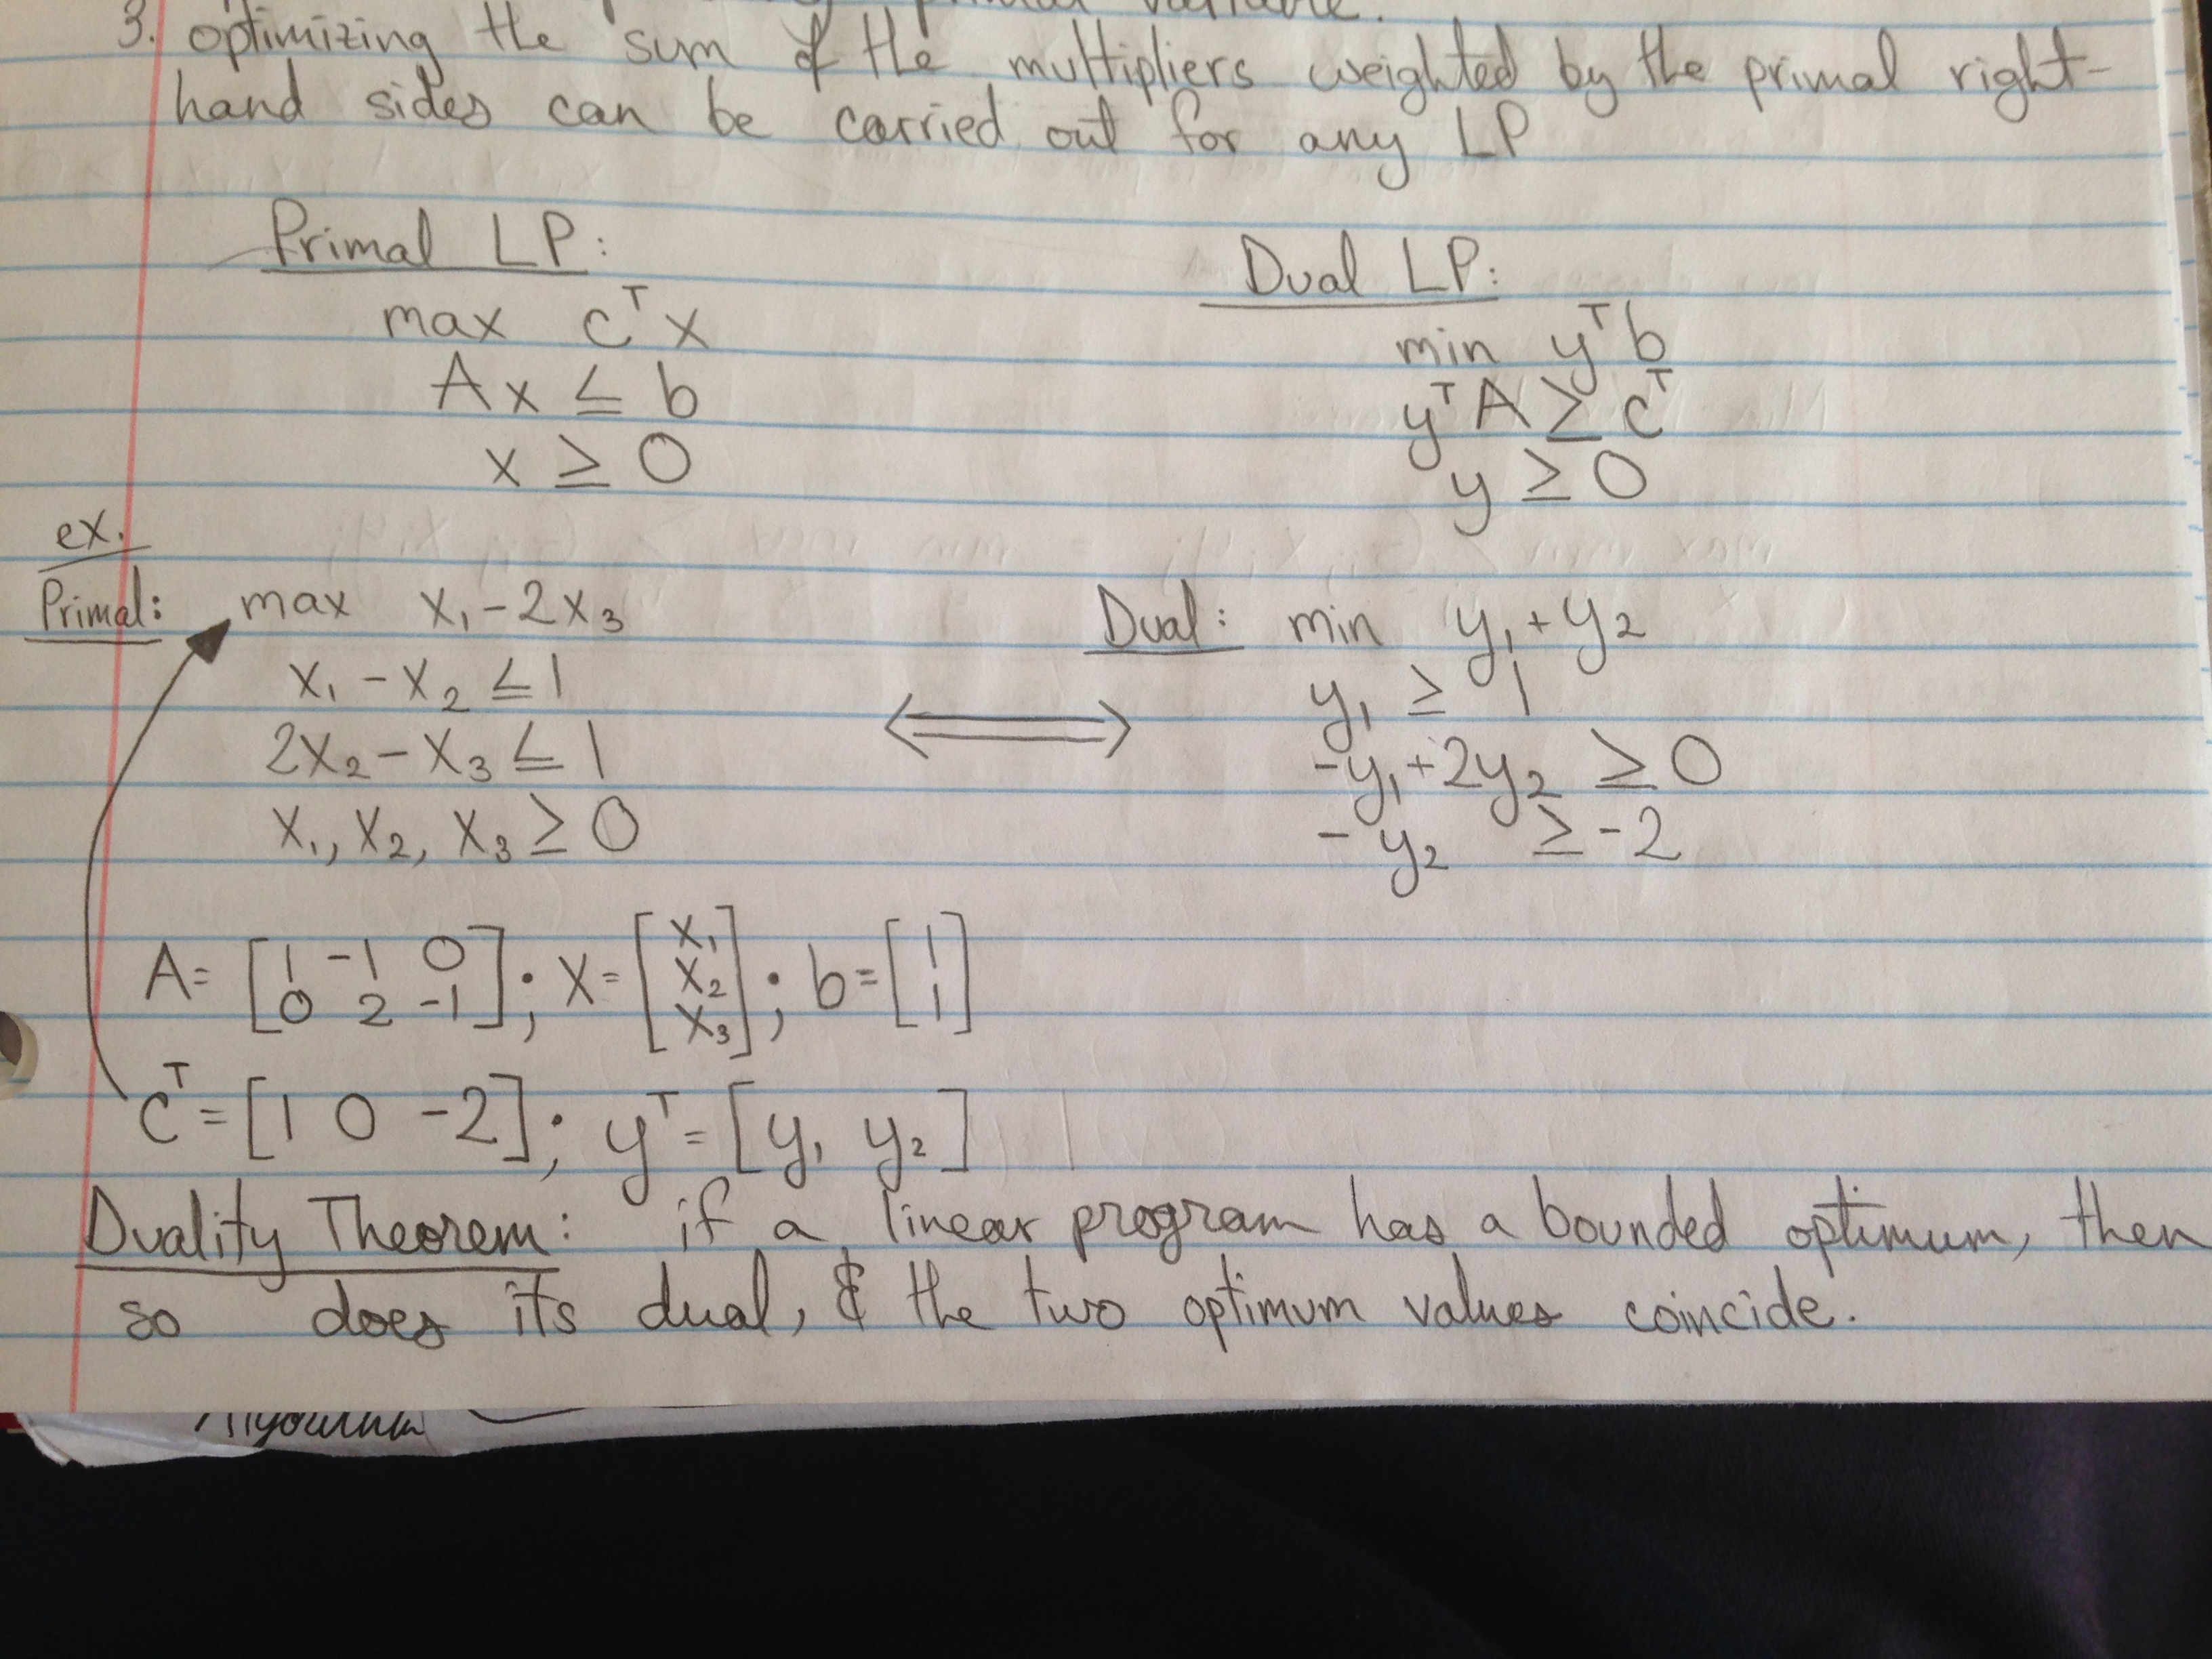 variable.
3. optimizing the sum of the multipliers weighted by the primal right-
hand sides can be carried out for any LP
Primal LP:
max cᵀx
Ax ≤ b
x ≥ 0
Dual LP:
min yᵀb
yᵀA ≥ cᵀ
y ≥ 0
ex.
Primal: max x₁ - 2x₃
x₁ - x₂ ≤ 1
2x₂ - x₃ ≤ 1
x₁, x₂, x₃ ≥ 0
⟺
Dual: min y₁ + y₂
y₁ ≥ 1
-y₁ + 2y₂ ≥ 0
-y₂ ≥ -2
A = [1 -1 0; 0 2 -1]; X = [x₁; x₂; x₃]; b = [1; 1]
cᵀ = [1 0 -2]; yᵀ = [y₁ y₂]
Duality Theorem: if a linear program has a bounded optimum, then
so does its dual, & the two optimum values coincide.